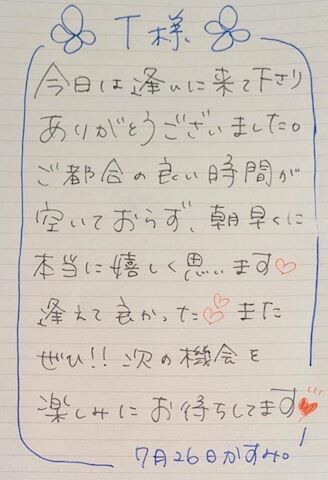 T様
今日は逢いに来て下さり
ありがとうございました。
ご都合の良い時間が
空いておらず、朝早くに
本当に嬉しく思います♡
逢えて良かった♡ また
ぜひ!! 次の機会を
楽しみにお待ちしてます♥
7月26日かすみ。